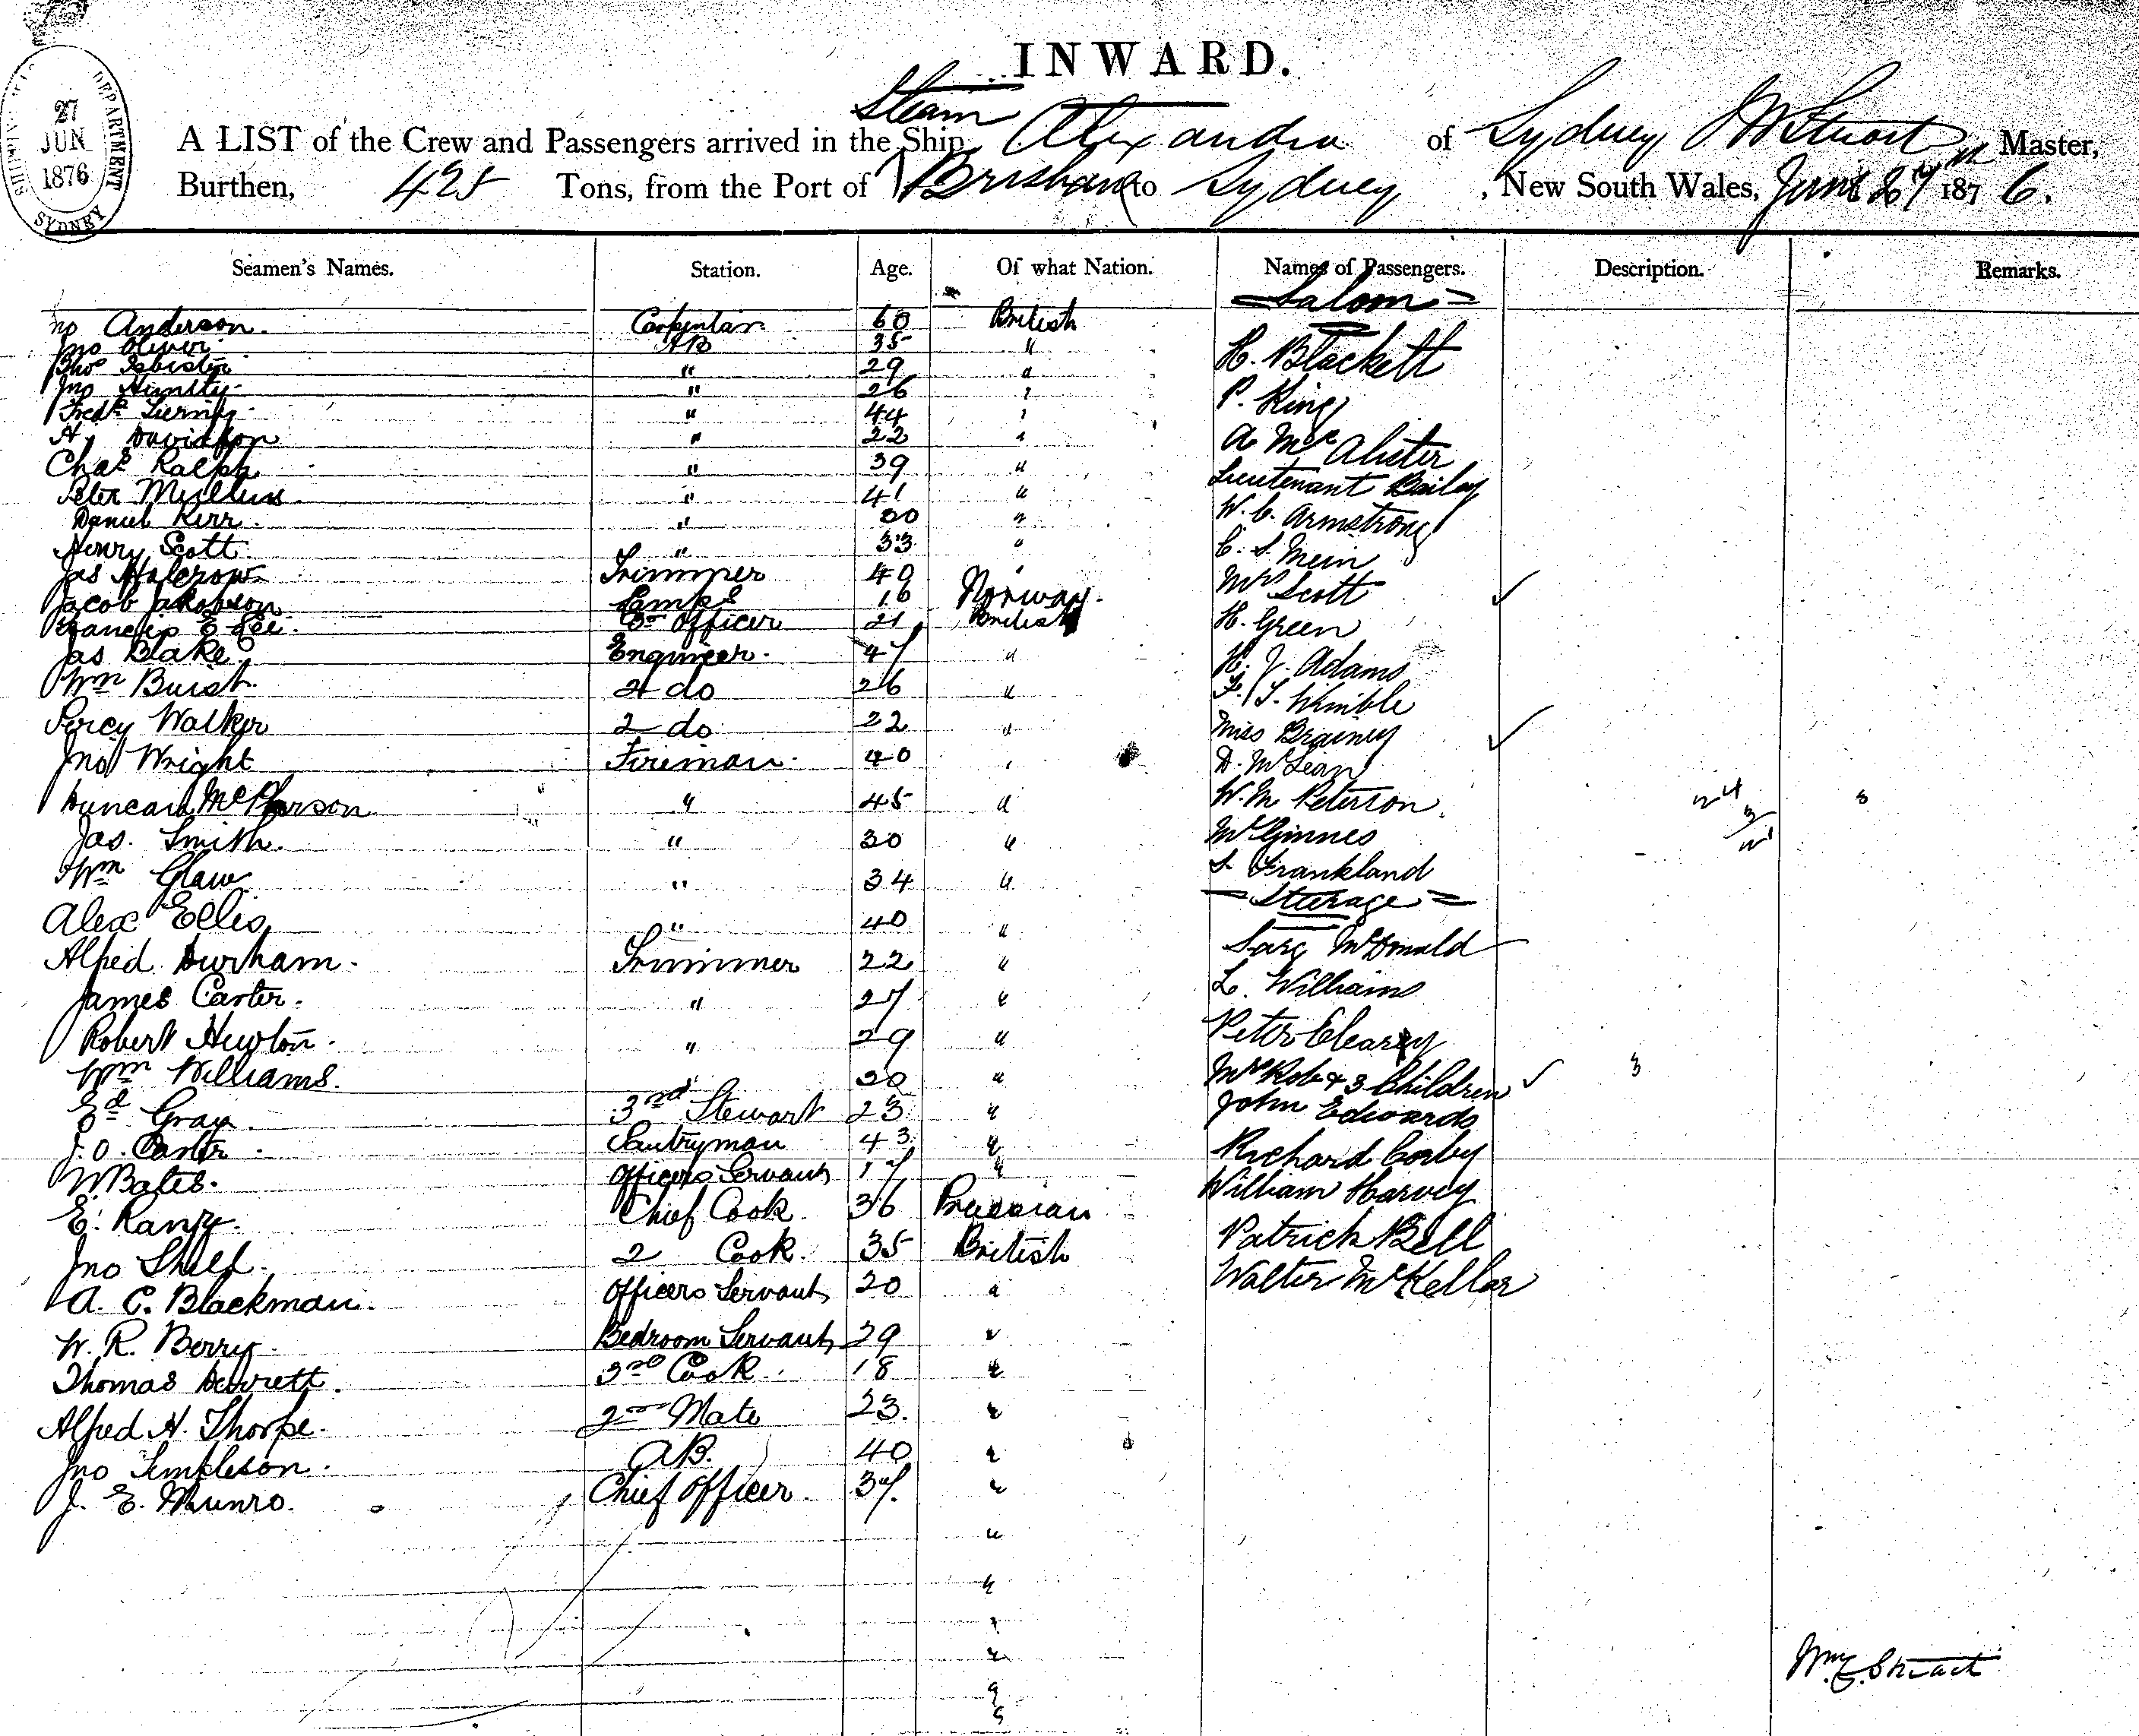 INWARD.
DEPARTMENT
27
JUN
1876
SYDNEY
Steam
A LIST of the Crew and Passengers arrived in the Ship Alexandra of Sydney Master,
Burthen, 425 Tons, from the Port of Brisbane to Sydney, New South Wales, June 27 1876.
Seamen's Names. Station. Age. Of what Nation. Names of Passengers. Description. Remarks.
= Saloon =
no Anderson. Carpenter 60 British
Jno Oliver AB 35 " H. Blackett
" 29 "
Jno " 26 " P. King
Fredk " 44 "
Hy Davidson " 22 " A McAlister
Chas Ralph " 39 "
Peter Mullins " 41 " Lieutenant Bailey
Daniel Kerr " 30 " W. C. Armstrong
Henry Scott " 33 " C. S. Mein
Jas Halcrow Trimmer 40 " Mrs Scott
Jacob Jakobson Lamps 16 Norway.
Francis E Lee Officer 21 British H. Green
Jas Blake Engineer 47 " H. J. Adams
Wm Buist 2 do 26 " F. T. Wimble
Percy Walker 2 do 22 " Miss
Jno Wright Fireman 40 " D. McLean
Duncan McPherson " 45 " W. M Peterson
Jas. Smith. " 30 " McGinnes
Wm " 34 " S Frankland
= Steerage =
Alex Ellis " 40 "
Alfred Durham Trimmer 22 " Sarg McDonald
James Carter. " 27 " L. Williams
Robert Hewton. " 29 " Peter Cleary
Wm Williams. " 20 " Mrs Rob & 3 Children 3
Ed Gray. 3rd Stewart 23 " John Edwards
J. O. Carter Pantryman 43 " Richard Corby
W Bates. Officers Servant 17 " William Harvey
E. Chief Cook 36 Prussian
Jno 2 Cook. 35 British Patrick Bell
A. C. Blackman. Officers Servant 20 " Walter McKellar
W. R. Berry Bedroom Servant 29 "
Thomas 3rd Cook 18 "
Alfred H. Thorpe. 2nd Mate 23. "
Jno Templeson. AB. 40 "
J. E. Munro. Chief Officer 37. "
"
"
"
"
"
"